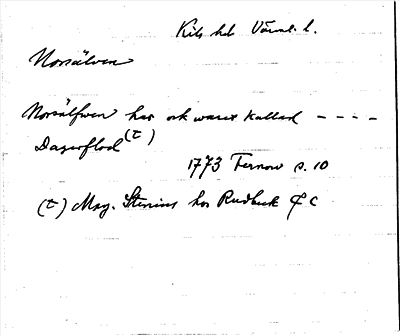 Kils hd Värml. l.
Norsälven
Norsälfwen har ock warit kallad - - - -
Dagerflod (t)
1773 Fernow s. 10
(t) Mag. Stenius hos Rudbeck & c